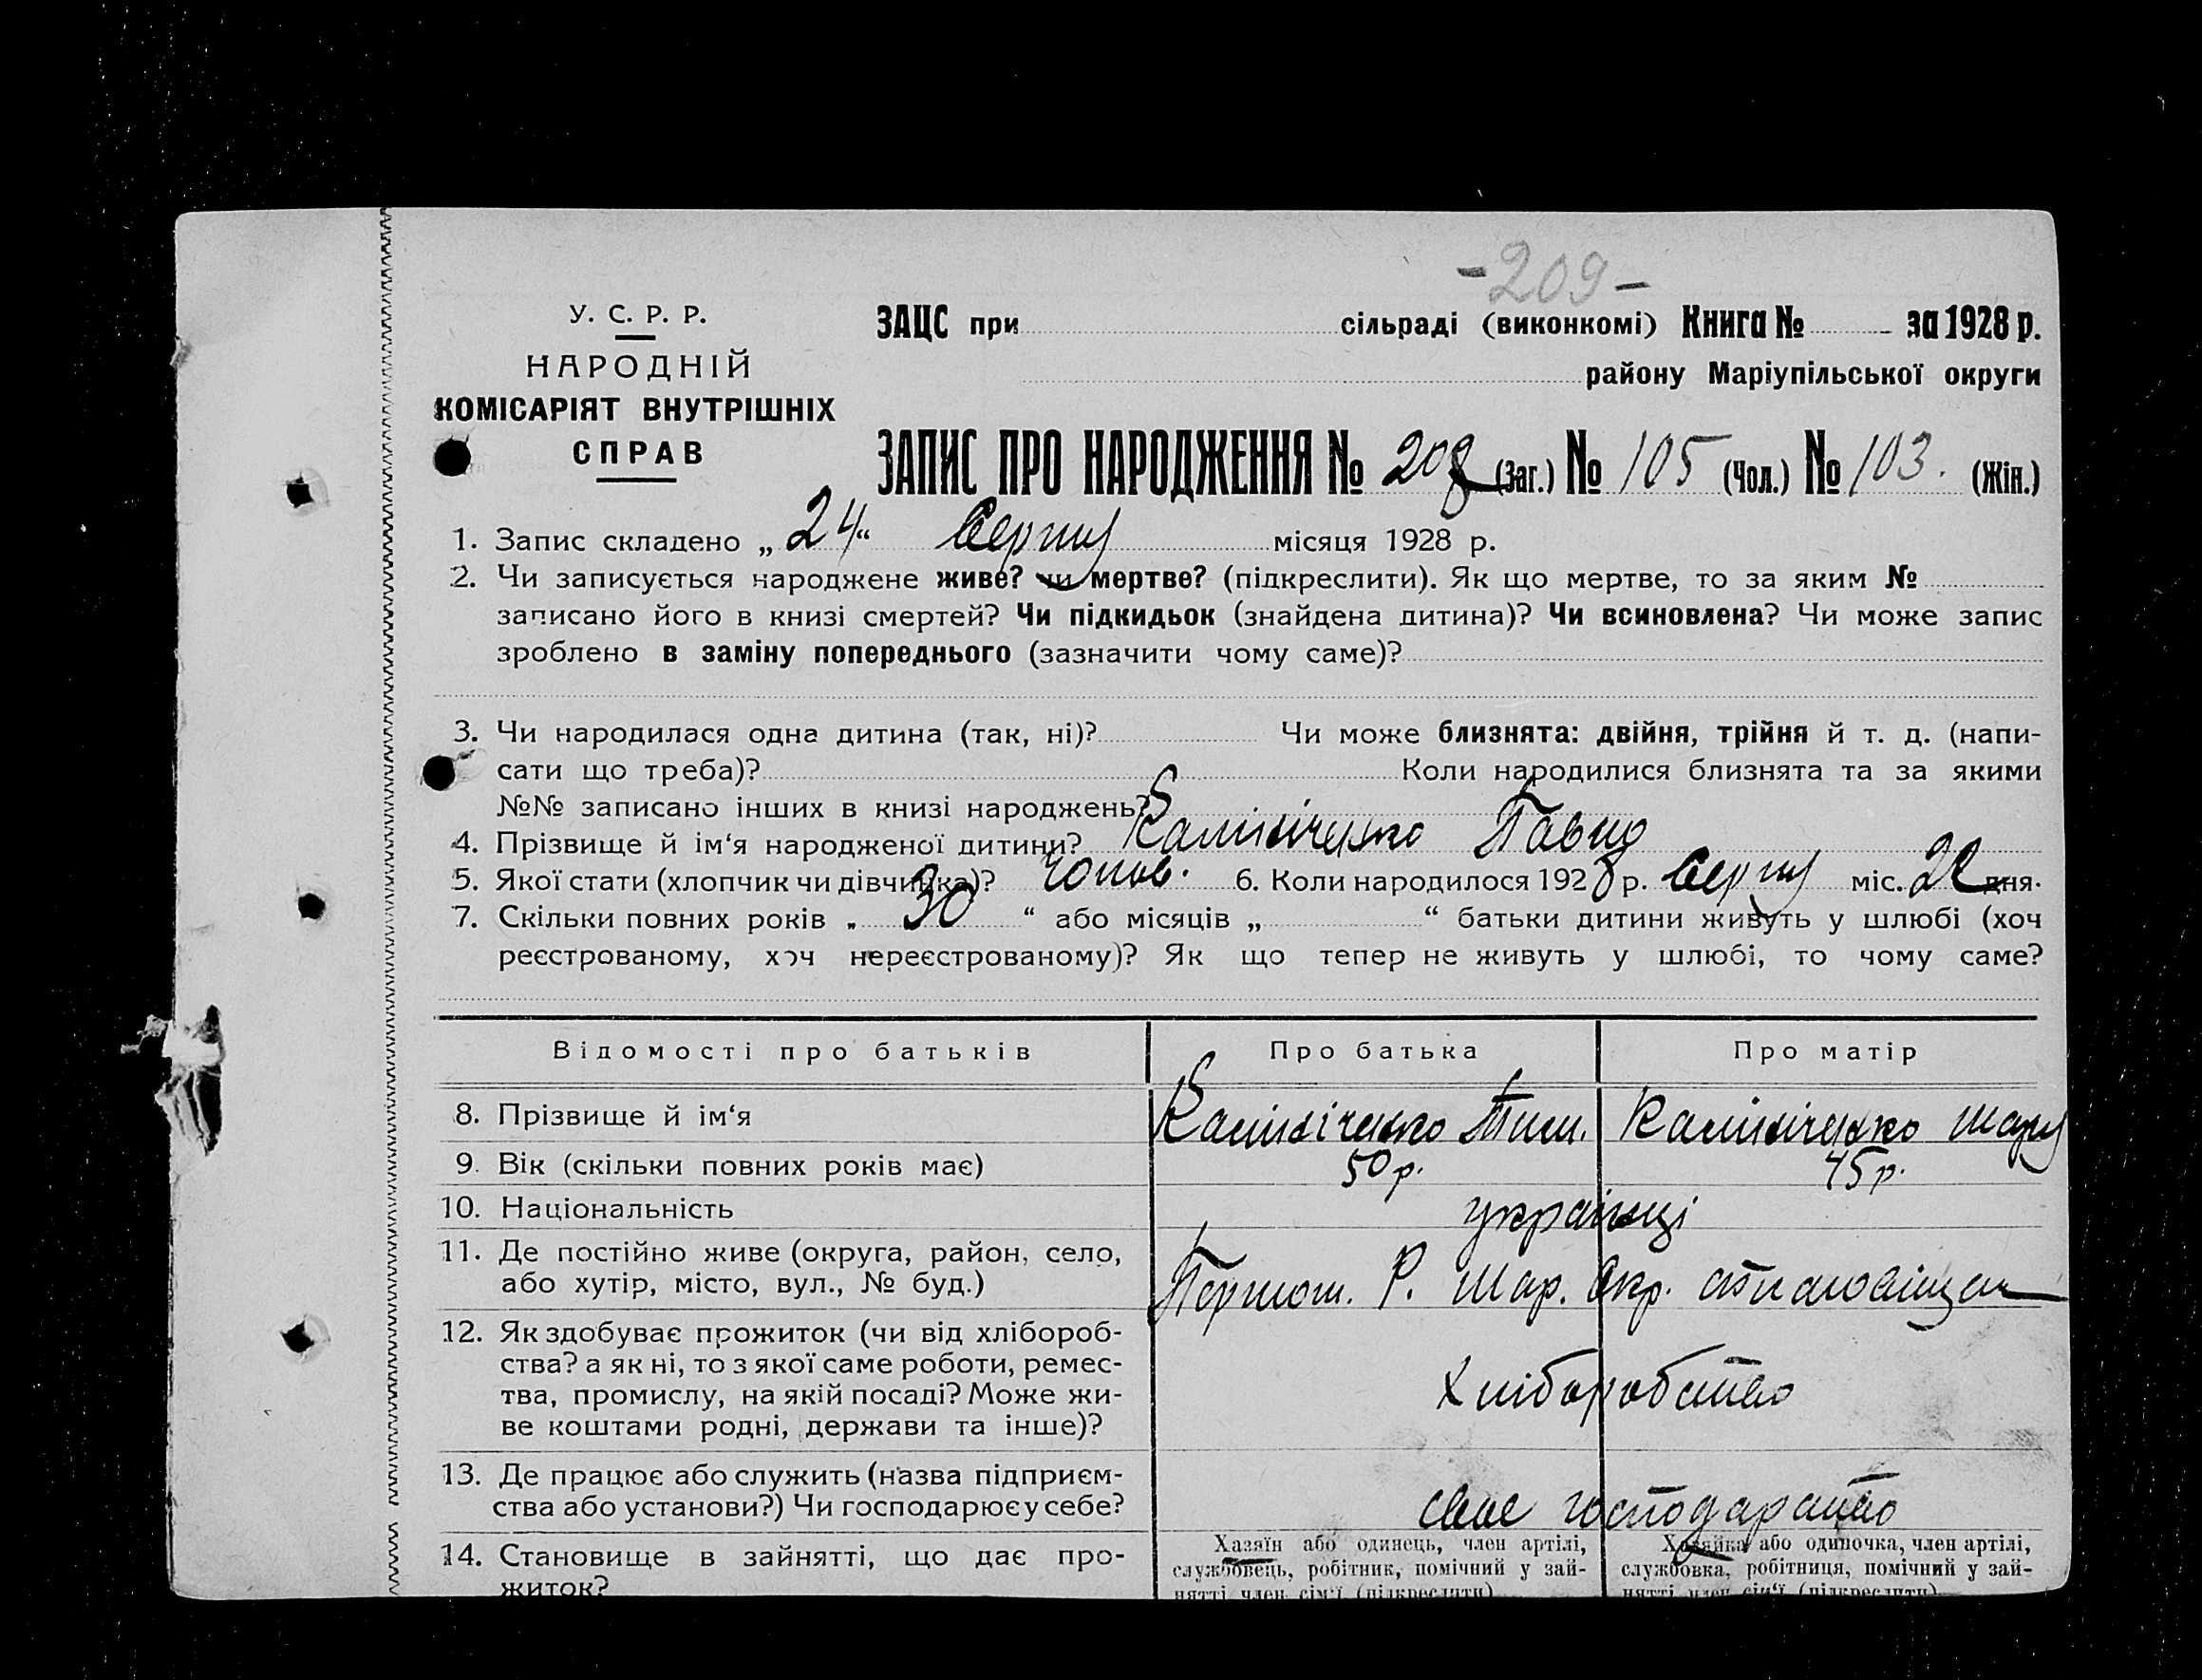 -209-
У. С. Р. Р.
НАРОДНІЙ
КОМІСАРІЯТ ВНУТРІШНІХ
СПРАВ
ЗАЦС при сільраді (виконкомі) Книга № за 1928 р.
району Маріупільської округи
ЗАПИС ПРО НАРОДЖЕННЯ № 208 (Заг.) № 105 (Чол.) № 103. (Жін.)
1. Запис складено „ 24 “ Серпня місяця 1928 р.
2. Чи записується народжене живе? чи мертве? (підкреслити). Як що мертве, то за яким №
записано його в книзі смертей? Чи підкидьок (знайдена дитина)? Чи всиновлена? Чи може запис
зроблено в заміну попереднього (зазначити чому саме)?
3. Чи народилася одна дитина (так, ні)? Чи може близнята: двійня, трійня й т. д. (напи-
сати що треба)? Коли народилися близнята та за якими
№№ записано інших в книзі народжень?
4. Прізвище й ім‘я народженої дитини? Калініченко Павло
5. Якої стати (хлопчик чи дівчинка)? Чолов. 6. Коли народилося 1928 р. Серпня міс. 22 дня.
7. Скільки повних років „ 30 “ або місяців „ “ батьки дитини живуть у шлюбі (хоч
реєстрованому, хоч нереєстрованому)? Як що тепер не живуть у шлюбі, то чому саме?
Відомості про батьків Про батька Про матір
8. Прізвище й ім‘я Калініченко Тим. Калініченко Мария
9. Вік (скільки повних років має) 50 р. 45 р.
10. Національність українці
11. Де постійно живе (округа, район, село,
або хутір, місто, вул., № буд.) Першот. Р. Мар. Окр.
12. Як здобуває прожиток (чи від хлібороб-
ства? а як ні, то з якої саме роботи, ремес-
тва, промислу, на якій посаді? Може жи-
ве коштами родні, держави та інше)? Хліборобство
13. Де працює або служить (назва підприєм-
ства або установи?) Чи господарює у себе? своє господарство
14. Становище в зайнятті, що дає про-
житок?
Хазяїн або одинець, член артілі,
службовець, робітник, помічний у зай-
нятті член сім‘ї (підкреслити)
Хазяйка або одиночка, член артілі,
службовка, робітниця, помічний у зай-
нятті член сім‘ї (підкреслити)